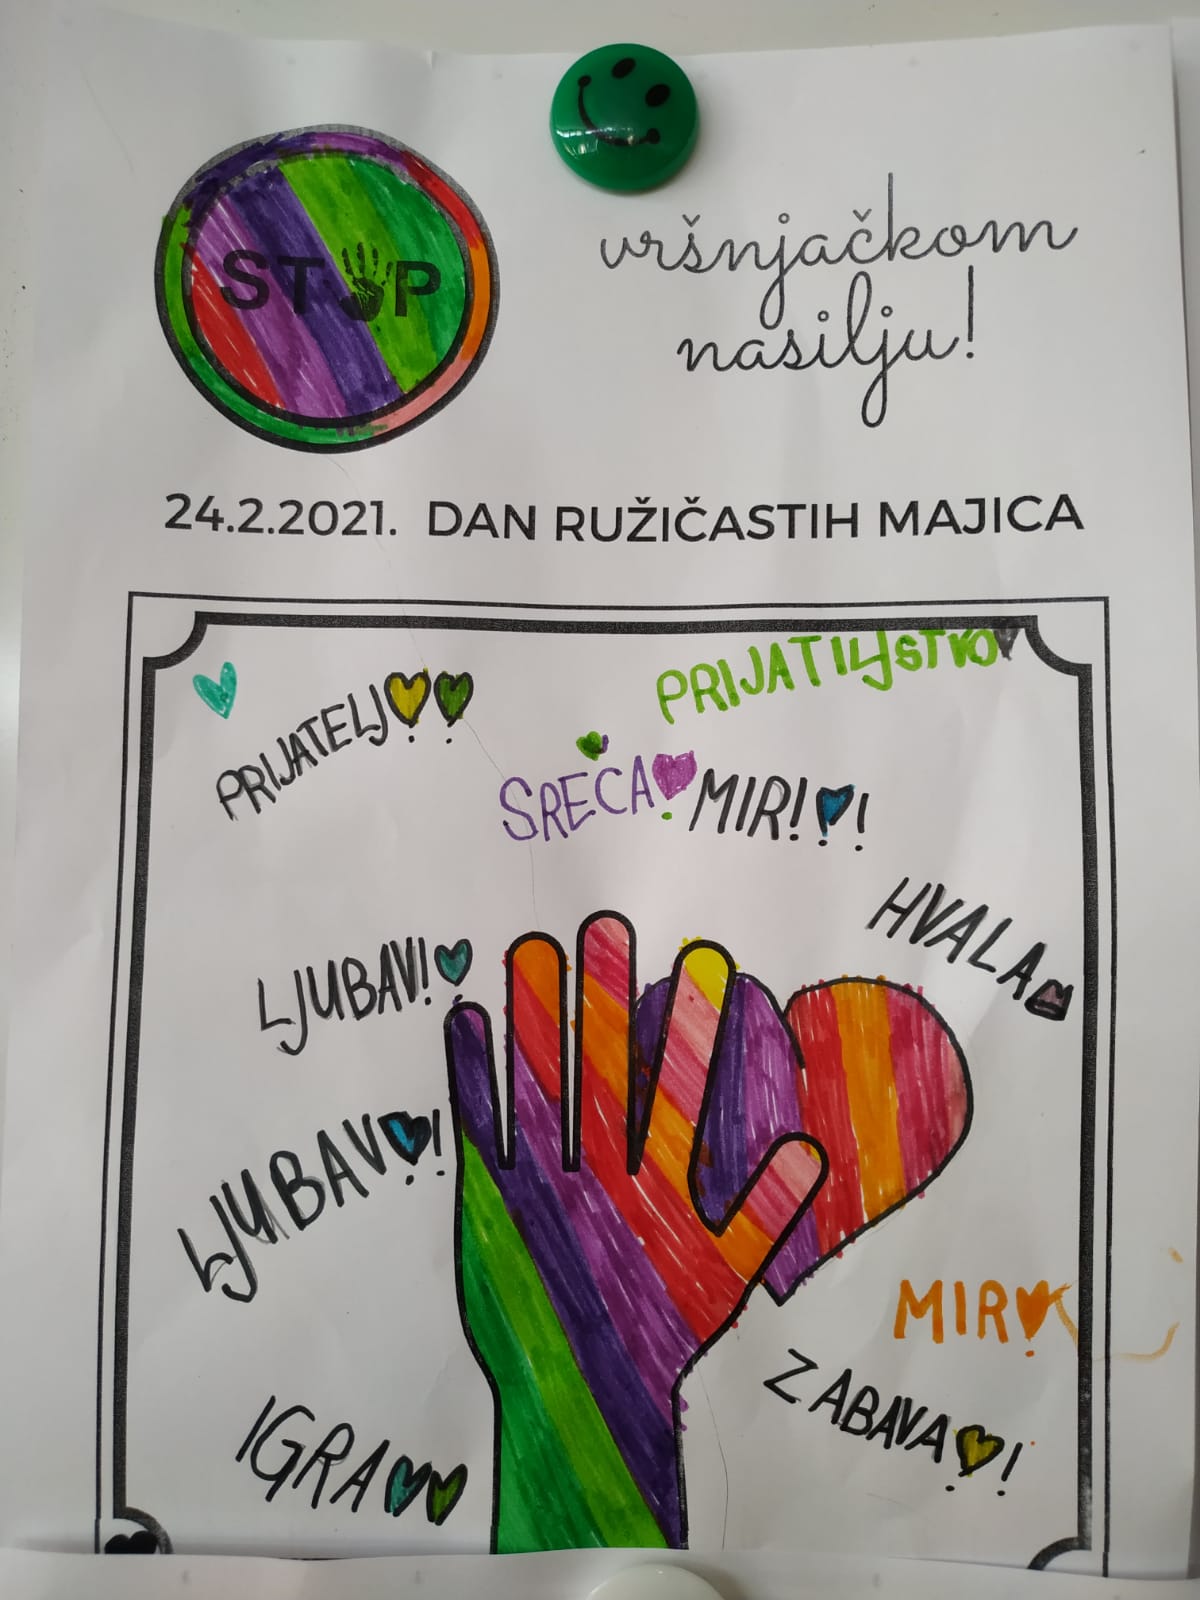 STOP
vršnjačkom
nasilju!
24.2.2021. DAN RUŽIČASTIH MAJICA
PRIJATELJ
PRIJATILJSTVO
SREĆA
MIR!!
HVALA
LJUBAV!
LJUBAV!
MIR
ZABAVA!
IGRA